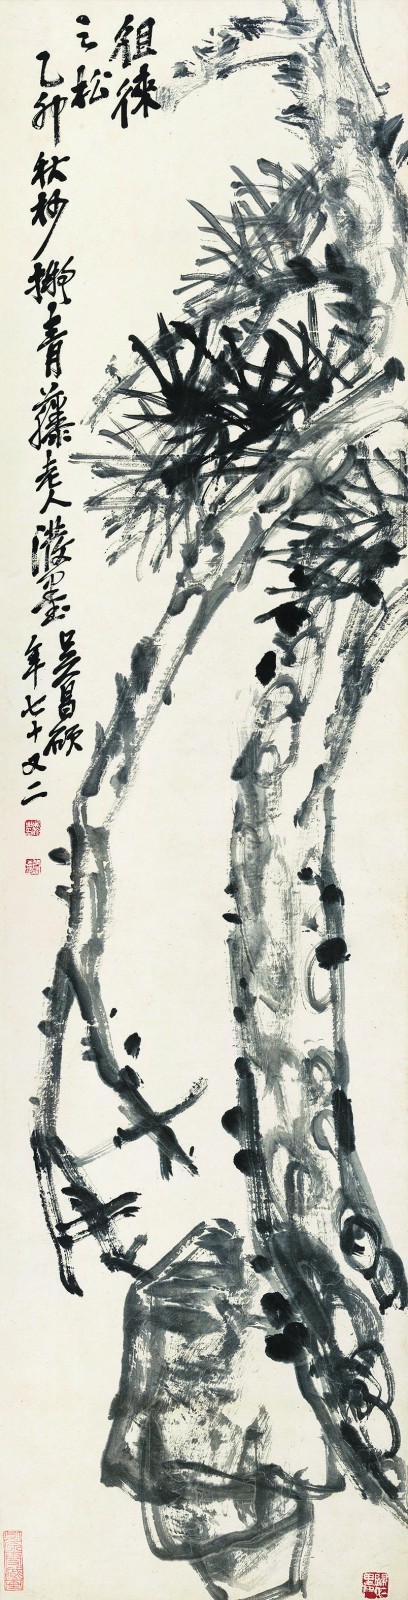 徂徕
之松
乙卯秋杪擬青藤老人潑墨
吳昌碩
年七十又二